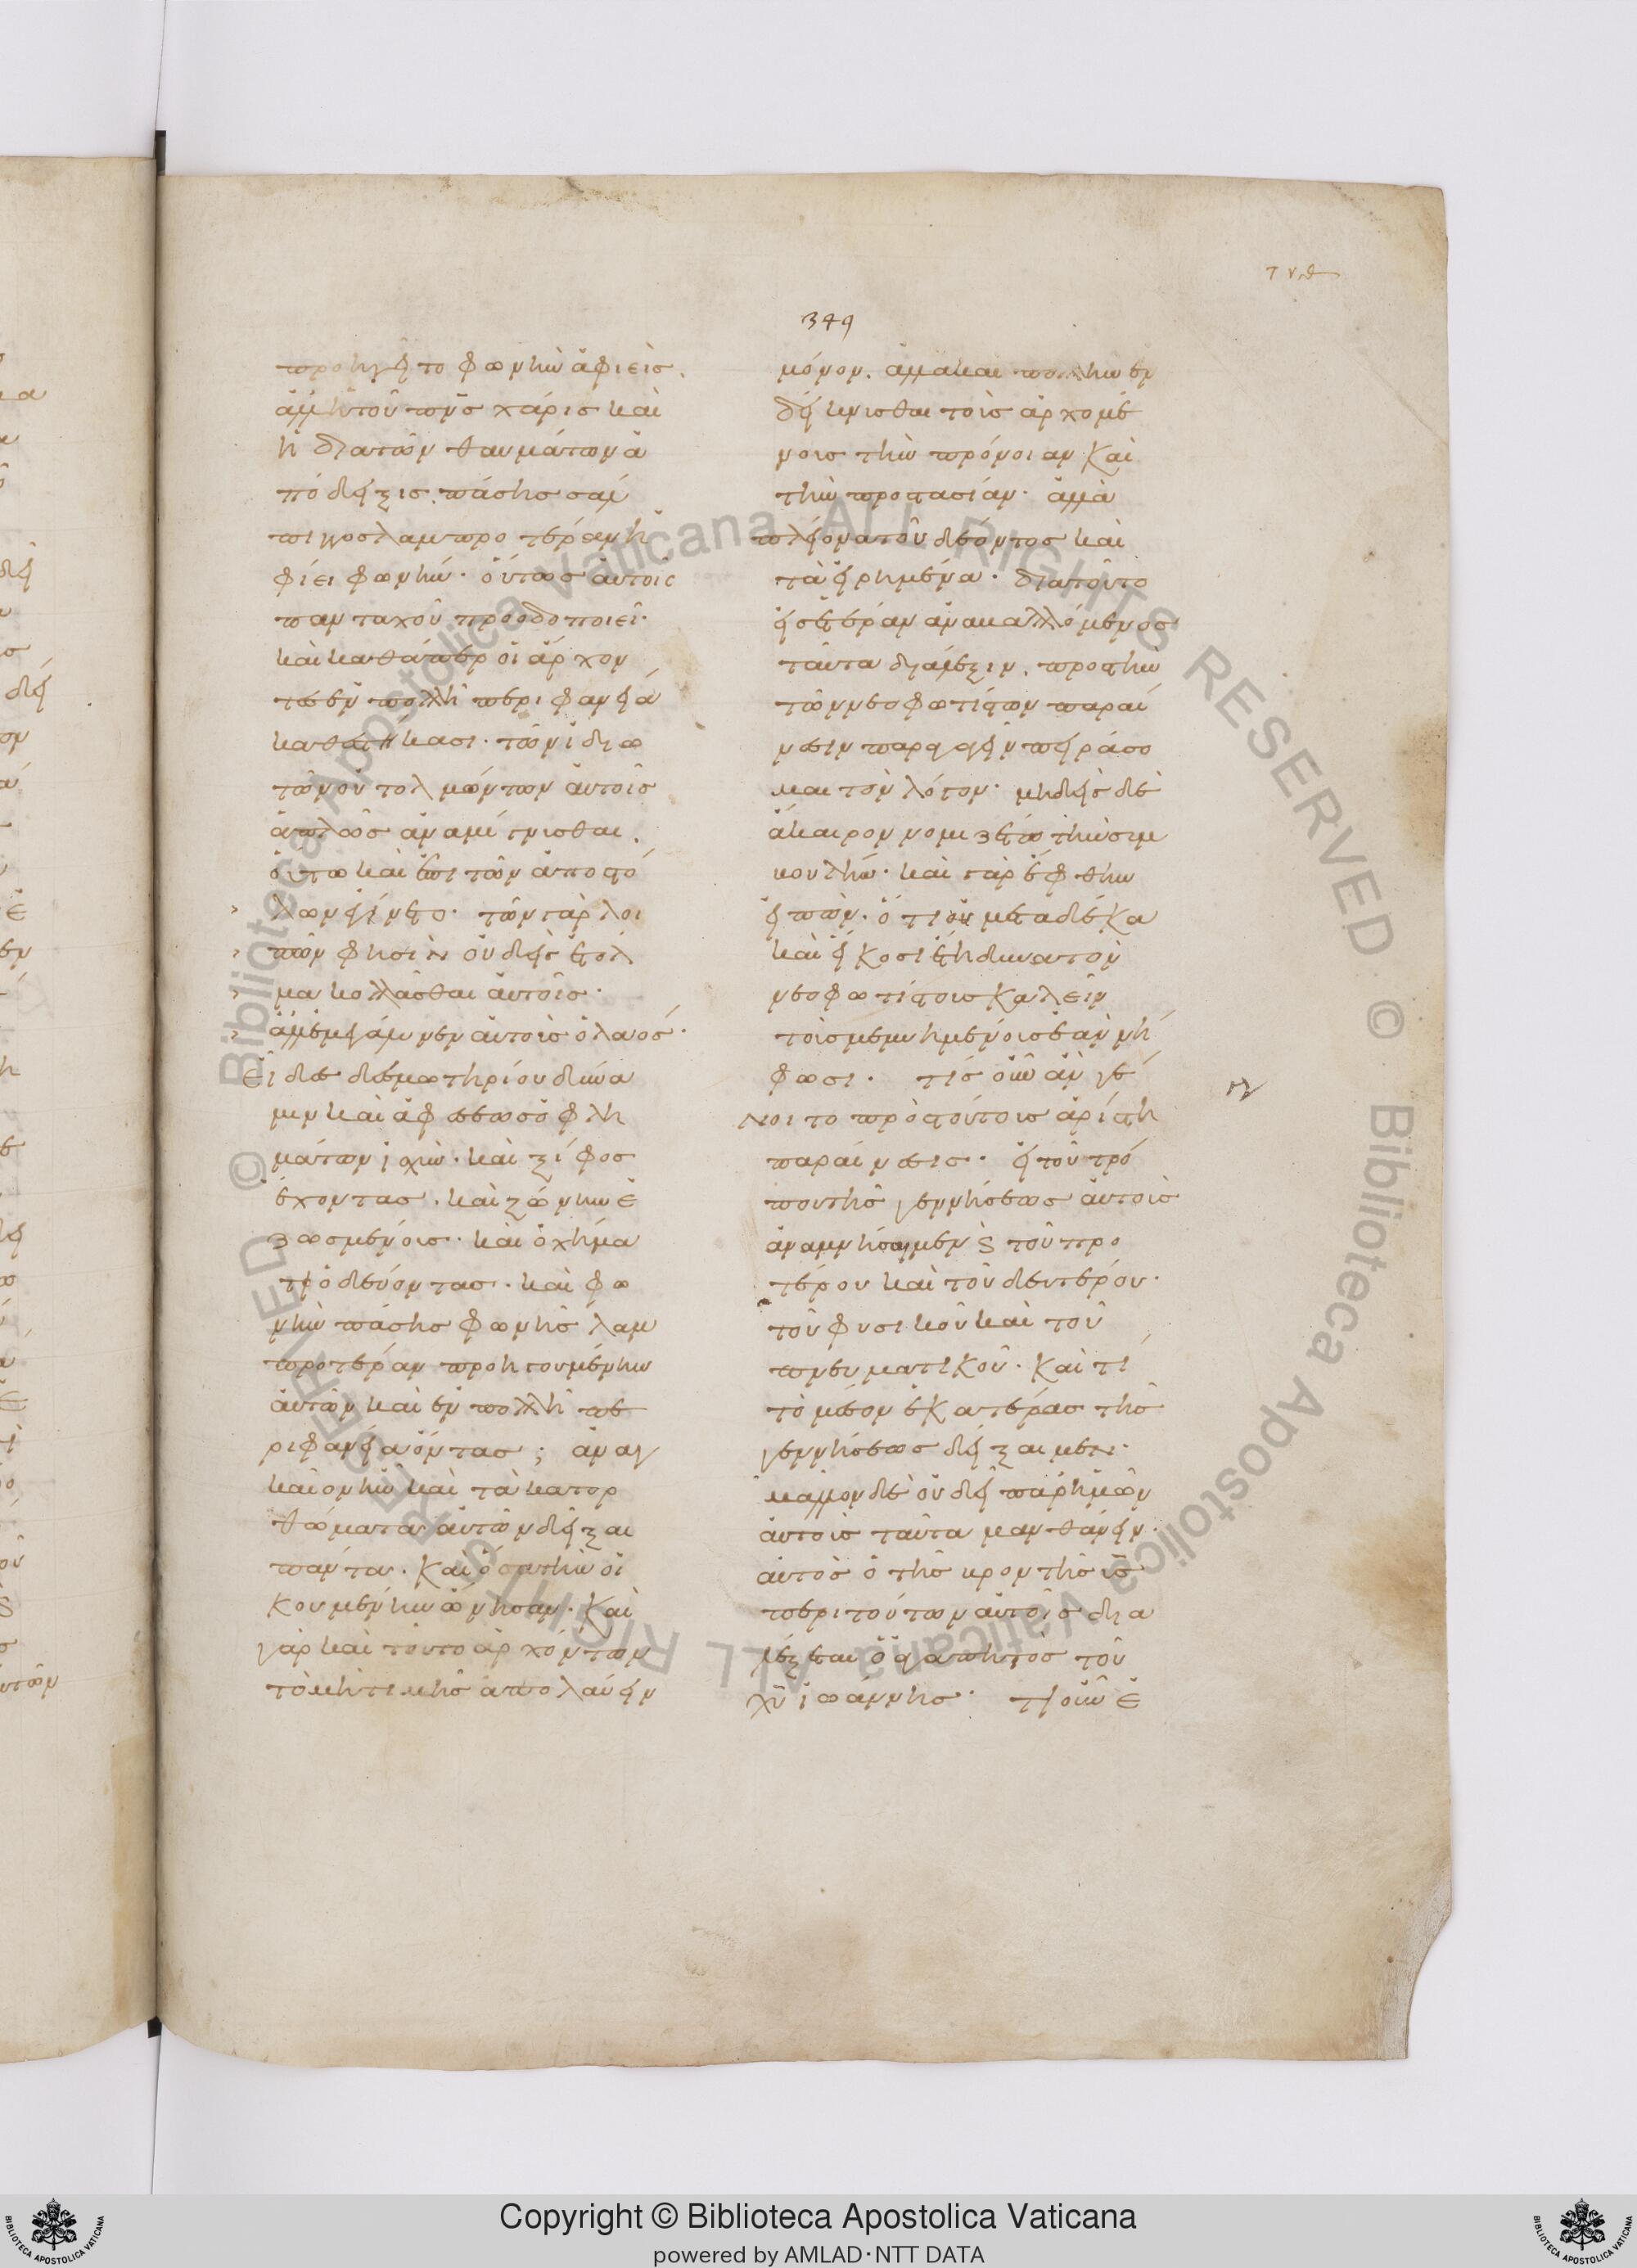 τνθ
349
προηγεῖτο φωνὴν ἀφιείς.
ἀλλ' ἡ τοῦ πνς χάρις καὶ
ἡ διὰ τῶν θαυμάτων ἀ
πόδειξις. πάσης σάλ
πιγγος λαμπροτέραν ἠ
φίει φωνήν· οὕτως αὐτοῖς
πανταχοῦ προοδοποιεῖ·
καὶ καθάπερ οἱ ἄρχον
τες ἐν πολλῆ περιφανεία
καθεστήκασι· τῶν ἰδιω
τῶν οὐ τολμώντων αὐτοῖς
ἁπλῶς ἀναμίγνυσθαι.
οὕτω καὶ ἐπὶ τῶν ἀποστό
λων ἐγίνετο· τῶν γὰρ λοι
πῶν φησὶν οὐδεὶς ἐτόλ
μα κολλᾶσθαι αὐτοῖς·
ἀλλ' ἐμεγάλυνεν αὐτοὺς ὁ λαός·
Εἶδες δεσμωτηρίου δύνα
μιν καὶ ἀφέσεως ὀφλη
μάτων ἰσχύν· καὶ ξίφος
ἔχοντας· καὶ ζώνην ἐ
ζωσμένους· καὶ ὀχήμα
τι ὀδεύοντας· καὶ φω
νὴν πάσης φωνῆς λαμ
προτέραν προηγουμένην
αὐτῶν καὶ ἐν πολλῆ πε
ριφανεία ὄντας; ἀναγ
καῖον ἦν καὶ τὰ κατορ
θώματα αὐτῶν δεῖξαι
πάντα· καὶ ὅσα τὴν οἰ
κουμένην ὤνησαν· καὶ
γὰρ καὶ τοῦτο ἀρχόντων
τὸ μὴ τιμῆς ἀπολαύειν
μόνον. ἀλλὰ καὶ πολλὴν ἐν
δείκνυσθαι τοῖς ἀρχομέ
νοις τὴν πρόνοιαν καὶ
τὴν προστασίαν· ἀλλὰ
πλείονα τοῦ δέοντος καὶ
τὰ εἰρημένα· διὰ τοῦτο
εἰς ἑτέραν ἀναβαλλόμενος
ταῦτα διάλεξιν. πρὸς τὴν
τῶν νεοφωτίστων παραί
νεσιν παραγαγεῖν πειράσο
μαι τὸν λόγον· μηδεὶς δὲ
ἄκαιρον νομιζέτω τὴν συμ
βουλήν· καὶ γὰρ ἔφθην
εἰπών. ὅτι οὐ μετὰ δέκα
καὶ εἴκοσι ἔτη δυνατὸν
νεοφωτίστους καλεῖν
τοὺς μεμυημένους ἐὰν νή
φωσι. τίς οὖν ἂν γέ
νοιτο πρὸς τούτους ἀρίστη
παραίνεσις· εἰ τοῦ τρό
που τῆς γεννήσεως αὐτοὺς
ἀναμνήσαιμεν ϗ τοῦ προ
τέρου καὶ τοῦ δευτέρου·
τοῦ φυσικοῦ καὶ τοῦ
πνευματικοῦ· καὶ τί
τὸ μέσον ἑκατέρας τῆς
γεννήσεως δείξαιμεν·
μᾶλλον δὲ οὐ δεῖ παρ' ἡμῶν
αὐτοὺς ταῦτα μανθάνειν.
αὐτὸς ὁ τῆς βροντῆς υς
περὶ τούτων αὐτοῖς δια
λέξεται ὁ ἀγαπητὸς τοῦ
χυ ἰωάννης· τί οὖν ἐ